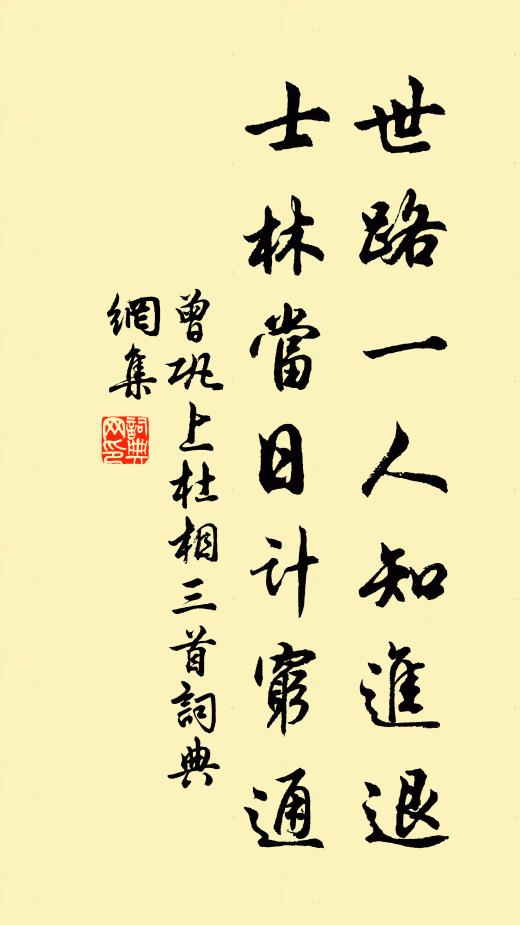 世路一人知進退
士林當日計窮通
曾巩上杜相三首詞典
網集
詞典网印